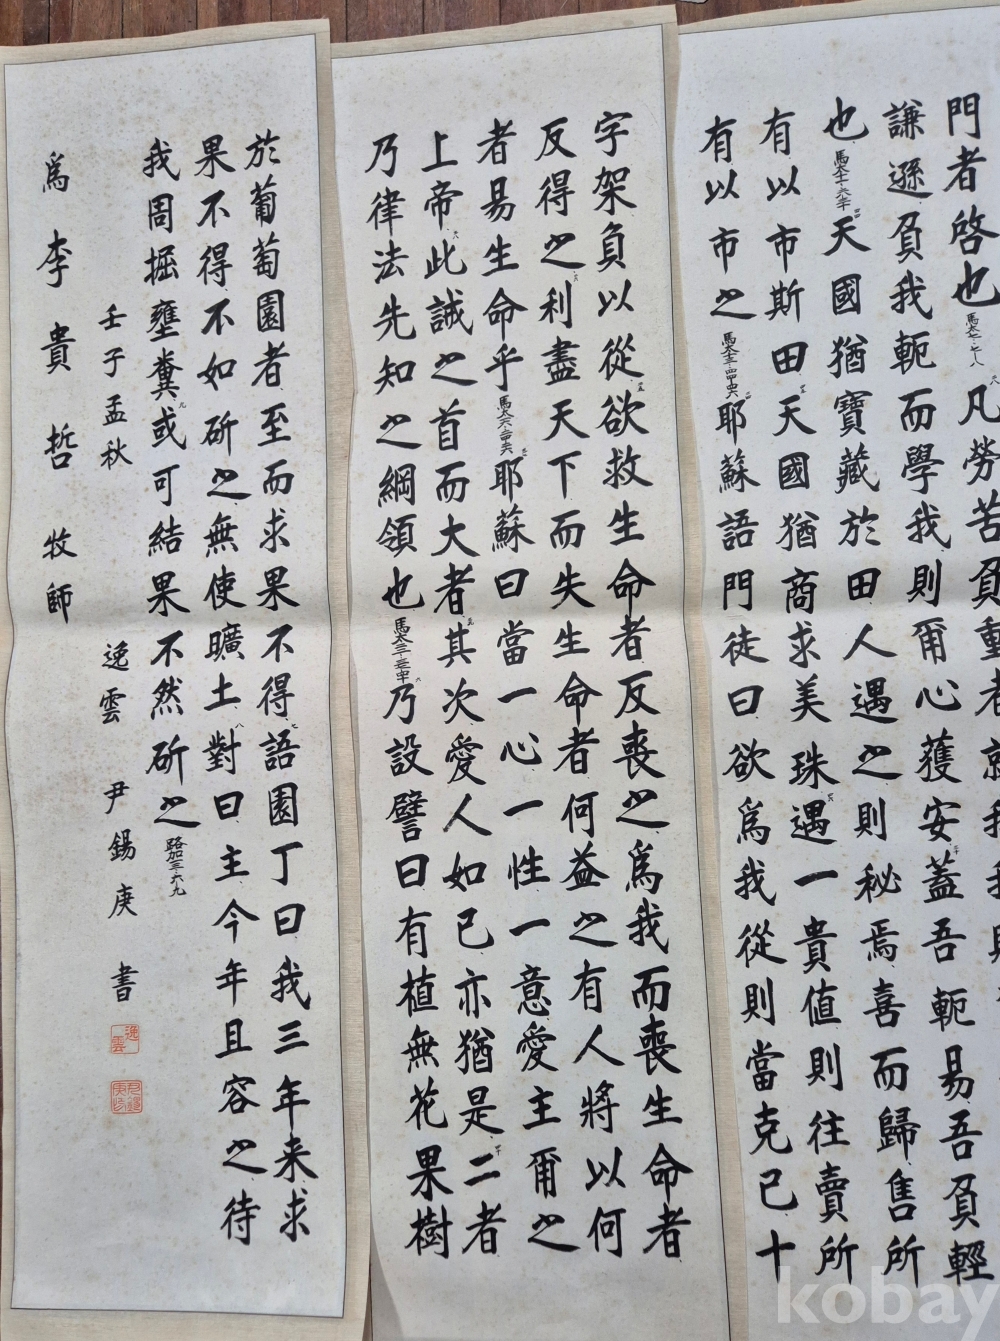 門者啓也
馬太七・七-八
凡勞苦負重者就我我
謙遜負我軛而學我則爾心獲安
三十
蓋吾軛易吾負輕
也
四四
天國猶寶藏於田人遇之則秘焉喜而歸售所
有以市斯田
天國猶商求美珠
遇一貴值則往賣所
有以市之
耶蘇語門徒曰欲爲我從則當克己十
字架負以從
欲救生命者反喪之爲我而喪生命者
反得之
利盡天下而失生命者何益之有人將以何
者易生命乎
耶蘇曰當一心一性一意愛主爾之
上帝
此誡之首而大者
其次愛人如己亦猶是
二者
乃律法先知之綱領也
乃設譬曰有植無花果樹
於葡萄園者至而求果不得
七
語園丁曰我三年来求
果不得不如斫之無使曠土
八
對曰主今年且容之待
我周掘壅糞
九
或可結果不然斫之
路加十三・六-九
壬子孟秋 逸雲 尹錫庚 書
爲李貴哲牧師
逸雲
kobay